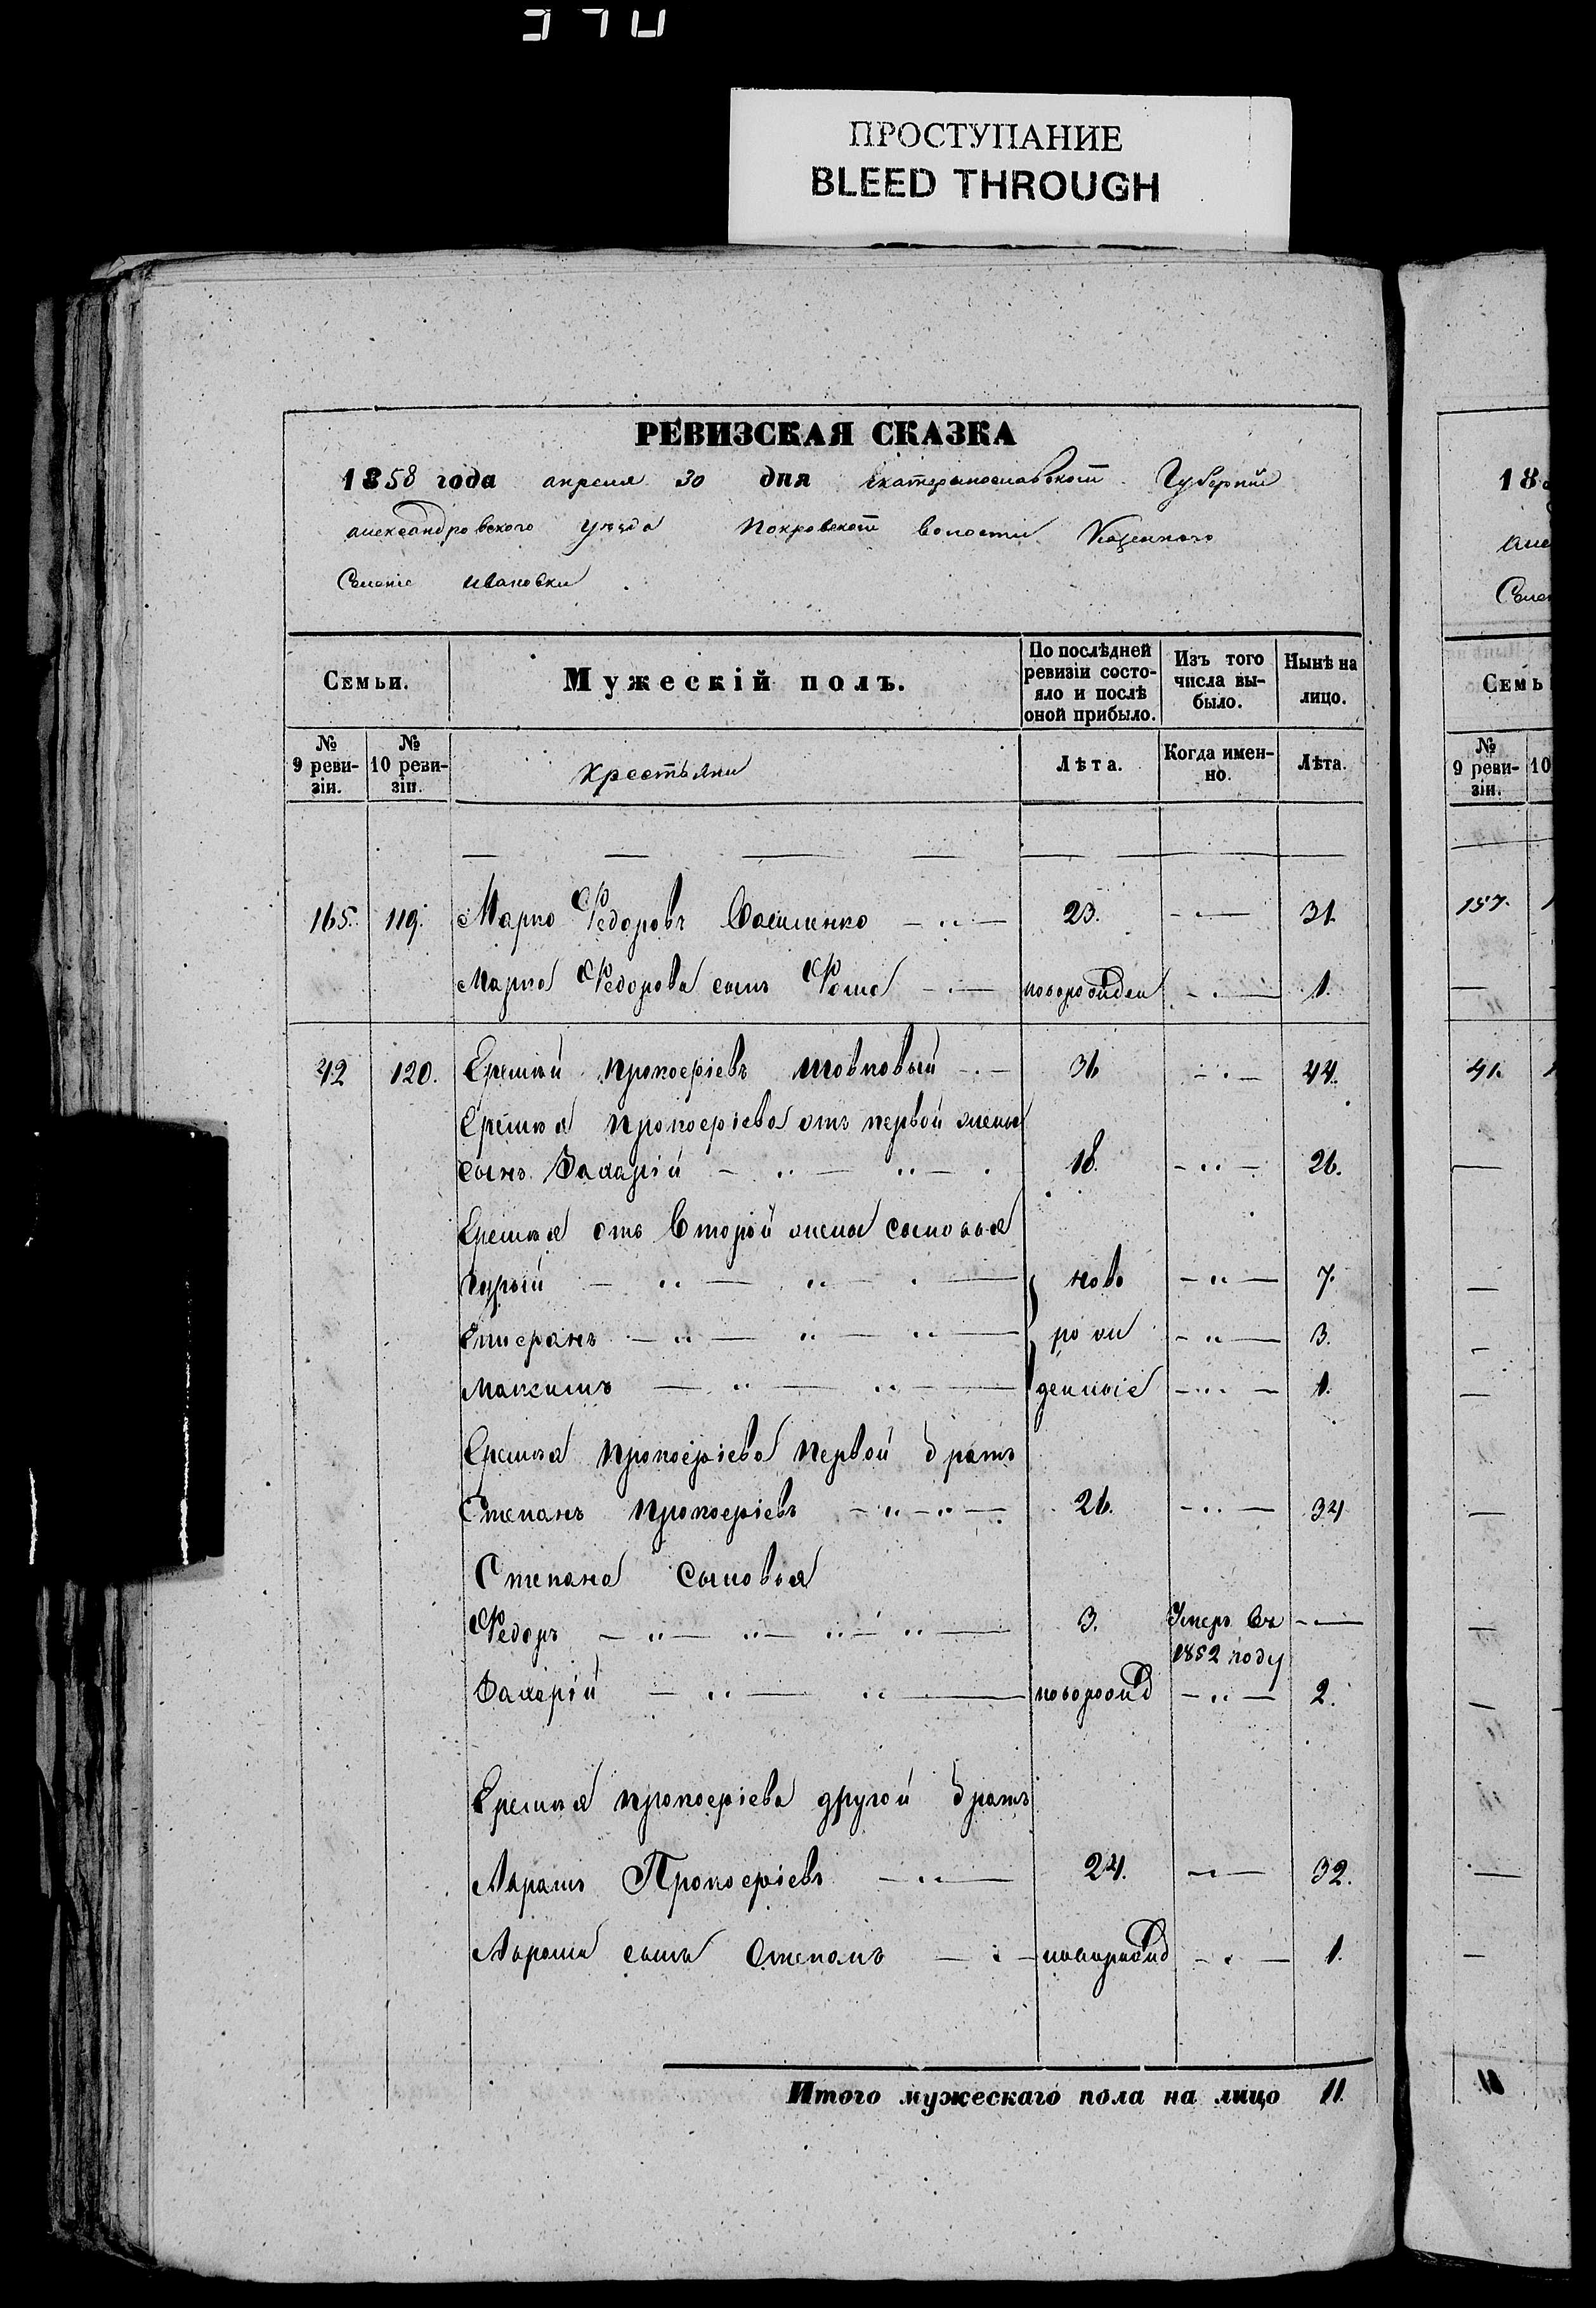 ПРОСТУПАНИЕ
BLEED THROUGH
РЕВИЗСКАЯ СКАЗКА
1858 года апреля 30 дня Екатеринославской Губернии
александровского уезда Покровской волости Казенного
Селение Ивановки
Семьи. Мужескій полъ. По послѣдней ревизіи состояло и послѣ оной прибыло. Изъ того числа выбыло. Нынѣ на лицо.
№ 9 ревизіи. № 10 ревизіи. Крестьяни Лѣта. Когда именно. Лѣта.
165. 119. Марко Федоровъ Василенко 23. 31.
Марка Федорова сынъ Фома новорожден 1.
42 120. Еремѣй Прокофіевъ 36 44.
Еремѣя Прокофіева отъ первой жены
сынъ Захарій 18. 26.
Еремѣя отъ Второй жены сыновья
ново 7.
Епифанъ рож 3.
Максимъ денные 1.
Еремѣя Прокофіева первой братъ
Степанъ Прокофіевъ 26. 34
Степана Сыновья
Федоръ 3. Умеръ въ
1852 году
Валерій новорожд 2.
Еремѣя Прокофіева другой братъ
Прокофіевъ 24. 32.
сынъ Степанъ новорожд 1.
Итого мужескаго пола на лицо 11.
18
Семь
№ 9 ревизіи. 10
157.
41.
11